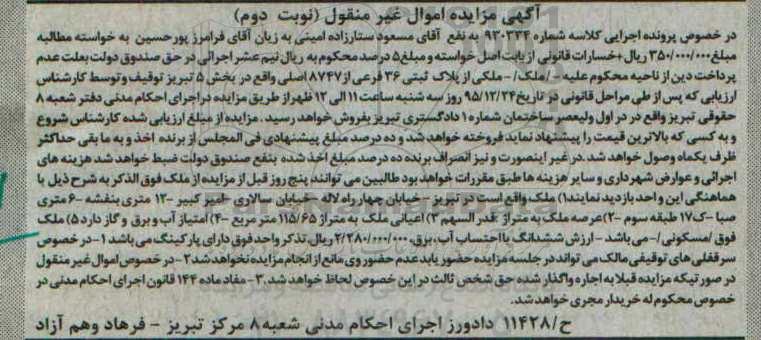 آگهی مزایده اموال غیر منقول (نوبت دوم)
در خصوص پرونده اجرایی کلاسه شماره ۹۳۰۳۳۴ به نفع آقای مسعود ستارزاده امینی به زیان آقای فرامرز پورحسین به خواسته مطالبه
مبلغ ۳۵۰/۰۰۰/۰۰۰ ریال + خسارات قانونی از بابت اصل خواسته و مبلغ ۵ درصد محکوم به ریال نیم عشر اجرائی در حق صندوق دولت بعلت عدم
پرداخت دین از ناحیه محکوم علیه -/ملک/- ملکی از پلاک ثبتی ۳۶ فرعی از ۸۷۴۷ اصلی واقع در بخش ۵ تبریز توقیف و توسط کارشناس
ارزیابی که پس از طی مراحل قانونی در تاریخ ۹۵/۱۲/۲۴ روز سه شنبه ساعت ۱۱ الی ۱۲ ظهر از طریق مزایده در اجرای احکام مدنی دفتر شعبه ۸
حقوقی تبریز واقع در در اول ولیعصر ساختمان شماره ۱ دادگستری تبریز بفروش خواهد رسید. مزایده از مبلغ ارزیابی شده کارشناس شروع
و به کسی که بالاترین قیمت را پیشنهاد نماید فروخته خواهد شد و ده درصد مبلغ پیشنهادی فی المجلس از برنده اخذ و به ما بقی حداکثر
ظرف یکماه وصول خواهد شد. در غیر اینصورت و نیز انصراف برنده ده درصد مبلغ اخذ شده بنفع صندوق دولت ضبط خواهد شد هزینه های
اجرائی و عوارض شهرداری و سایر هزینه ها طبق مقررات خواهد بود طالبین می توانند پنج روز قبل از مزایده از ملک فوق الذکر به شرح ذیل با
هماهنگی این واحد بازدید نمایند ۱) ملک واقع است در تبریز - خیابان چهار راه لاله - خیابان سالاری - امیر کبیر - ۱۲ متری بنفشه - ۶ متری
صبا - ک۱۷ طبقه سوم ۲) عرصه ملک به متراژ - قدر السهم ۳) اعیانی ملک به متراژ ۱۱۵/۶۵ متر مربع ۴) امتیاز آب و برق و گاز دارد ۵) ملک
فوق /مسکونی/- می باشد - ارزش ششدانگ با احتساب آب، برق، ۲/۲۸۰/۰۰۰/۰۰۰ ریال. تذکر واحد فوق دارای پارکینگ می باشد ۱- در خصوص
سرقفلی های توقیفی مالک می تواند در جلسه مزایده حضور یابد عدم حضور وی مانع از انجام مزایده نخواهد شد ۲- در خصوص اموال غیر منقول
در صورتیکه مزایده قبلا به اجاره واگذار شده حق شخص ثالث در این خصوص لحاظ خواهد شد. ۳- مفاد ماده ۱۴۴ قانون اجرای احکام مدنی در
خصوص محکوم له خریدار مجری خواهد شد.
ح/۱۱۴۲۸ دادورز اجرای احکام مدنی شعبه ۸ مرکز تبریز - فرهاد وهم آزاد